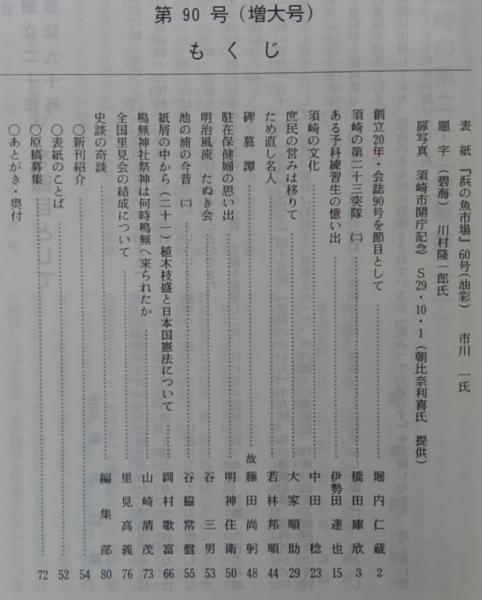 第90号(増大号)
もくじ
表紙『浜の魚市場』60号(油彩) 市川一氏
題字(碧海) 川村隆一郎氏
扉写真 須崎市開庁記念 S29・10・1(朝比奈利喜氏 提供)
創立20年・会誌90号を節目として 堀内仁蔵 2
須崎の第二十三突隊(二) 橋田庫欣 3
ある予科練習生の憶い出 伊勢田達也 15
須崎の文化 中田稔 23
庶民の営みは移りて 大家順助 29
ため直し名人 若林邦順 44
碑墓譚 故藤田尚躬 48
駐在保健婦の思い出 明神住衛 50
明治風流 たぬき会 谷三男 53
池の浦の今昔(二) 谷脇常盤 55
紙屑の中から(二十一)植木枝盛と日本国憲法について 岡村歌富 66
鳴無神社祭神は何時鳴無へ来られたか 山崎清茂 73
全国里見会の結成について 里見高義 76
史談の奇談 編集部 80
○新刊紹介 54
○表紙のことば 52
○原稿募集 72
○あとがき・奥付